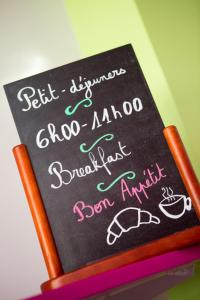 Petit-déjeuners
6h00-11h00
Breakfast
Bon Appétit